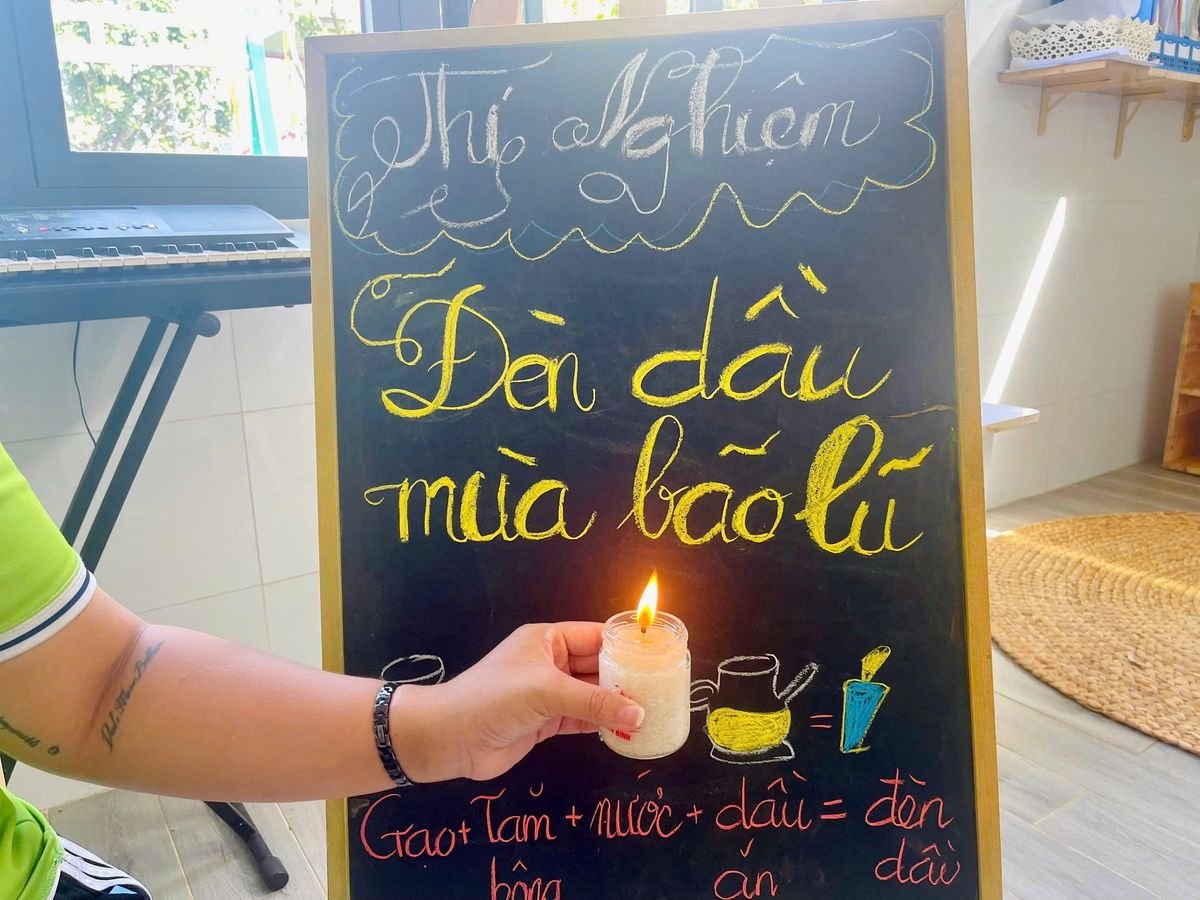 Thí Nghiệm
Đèn dầu
mùa bão lũ
=
Gạo + Tăm + nước + dầu = đèn
bông ăn dầu